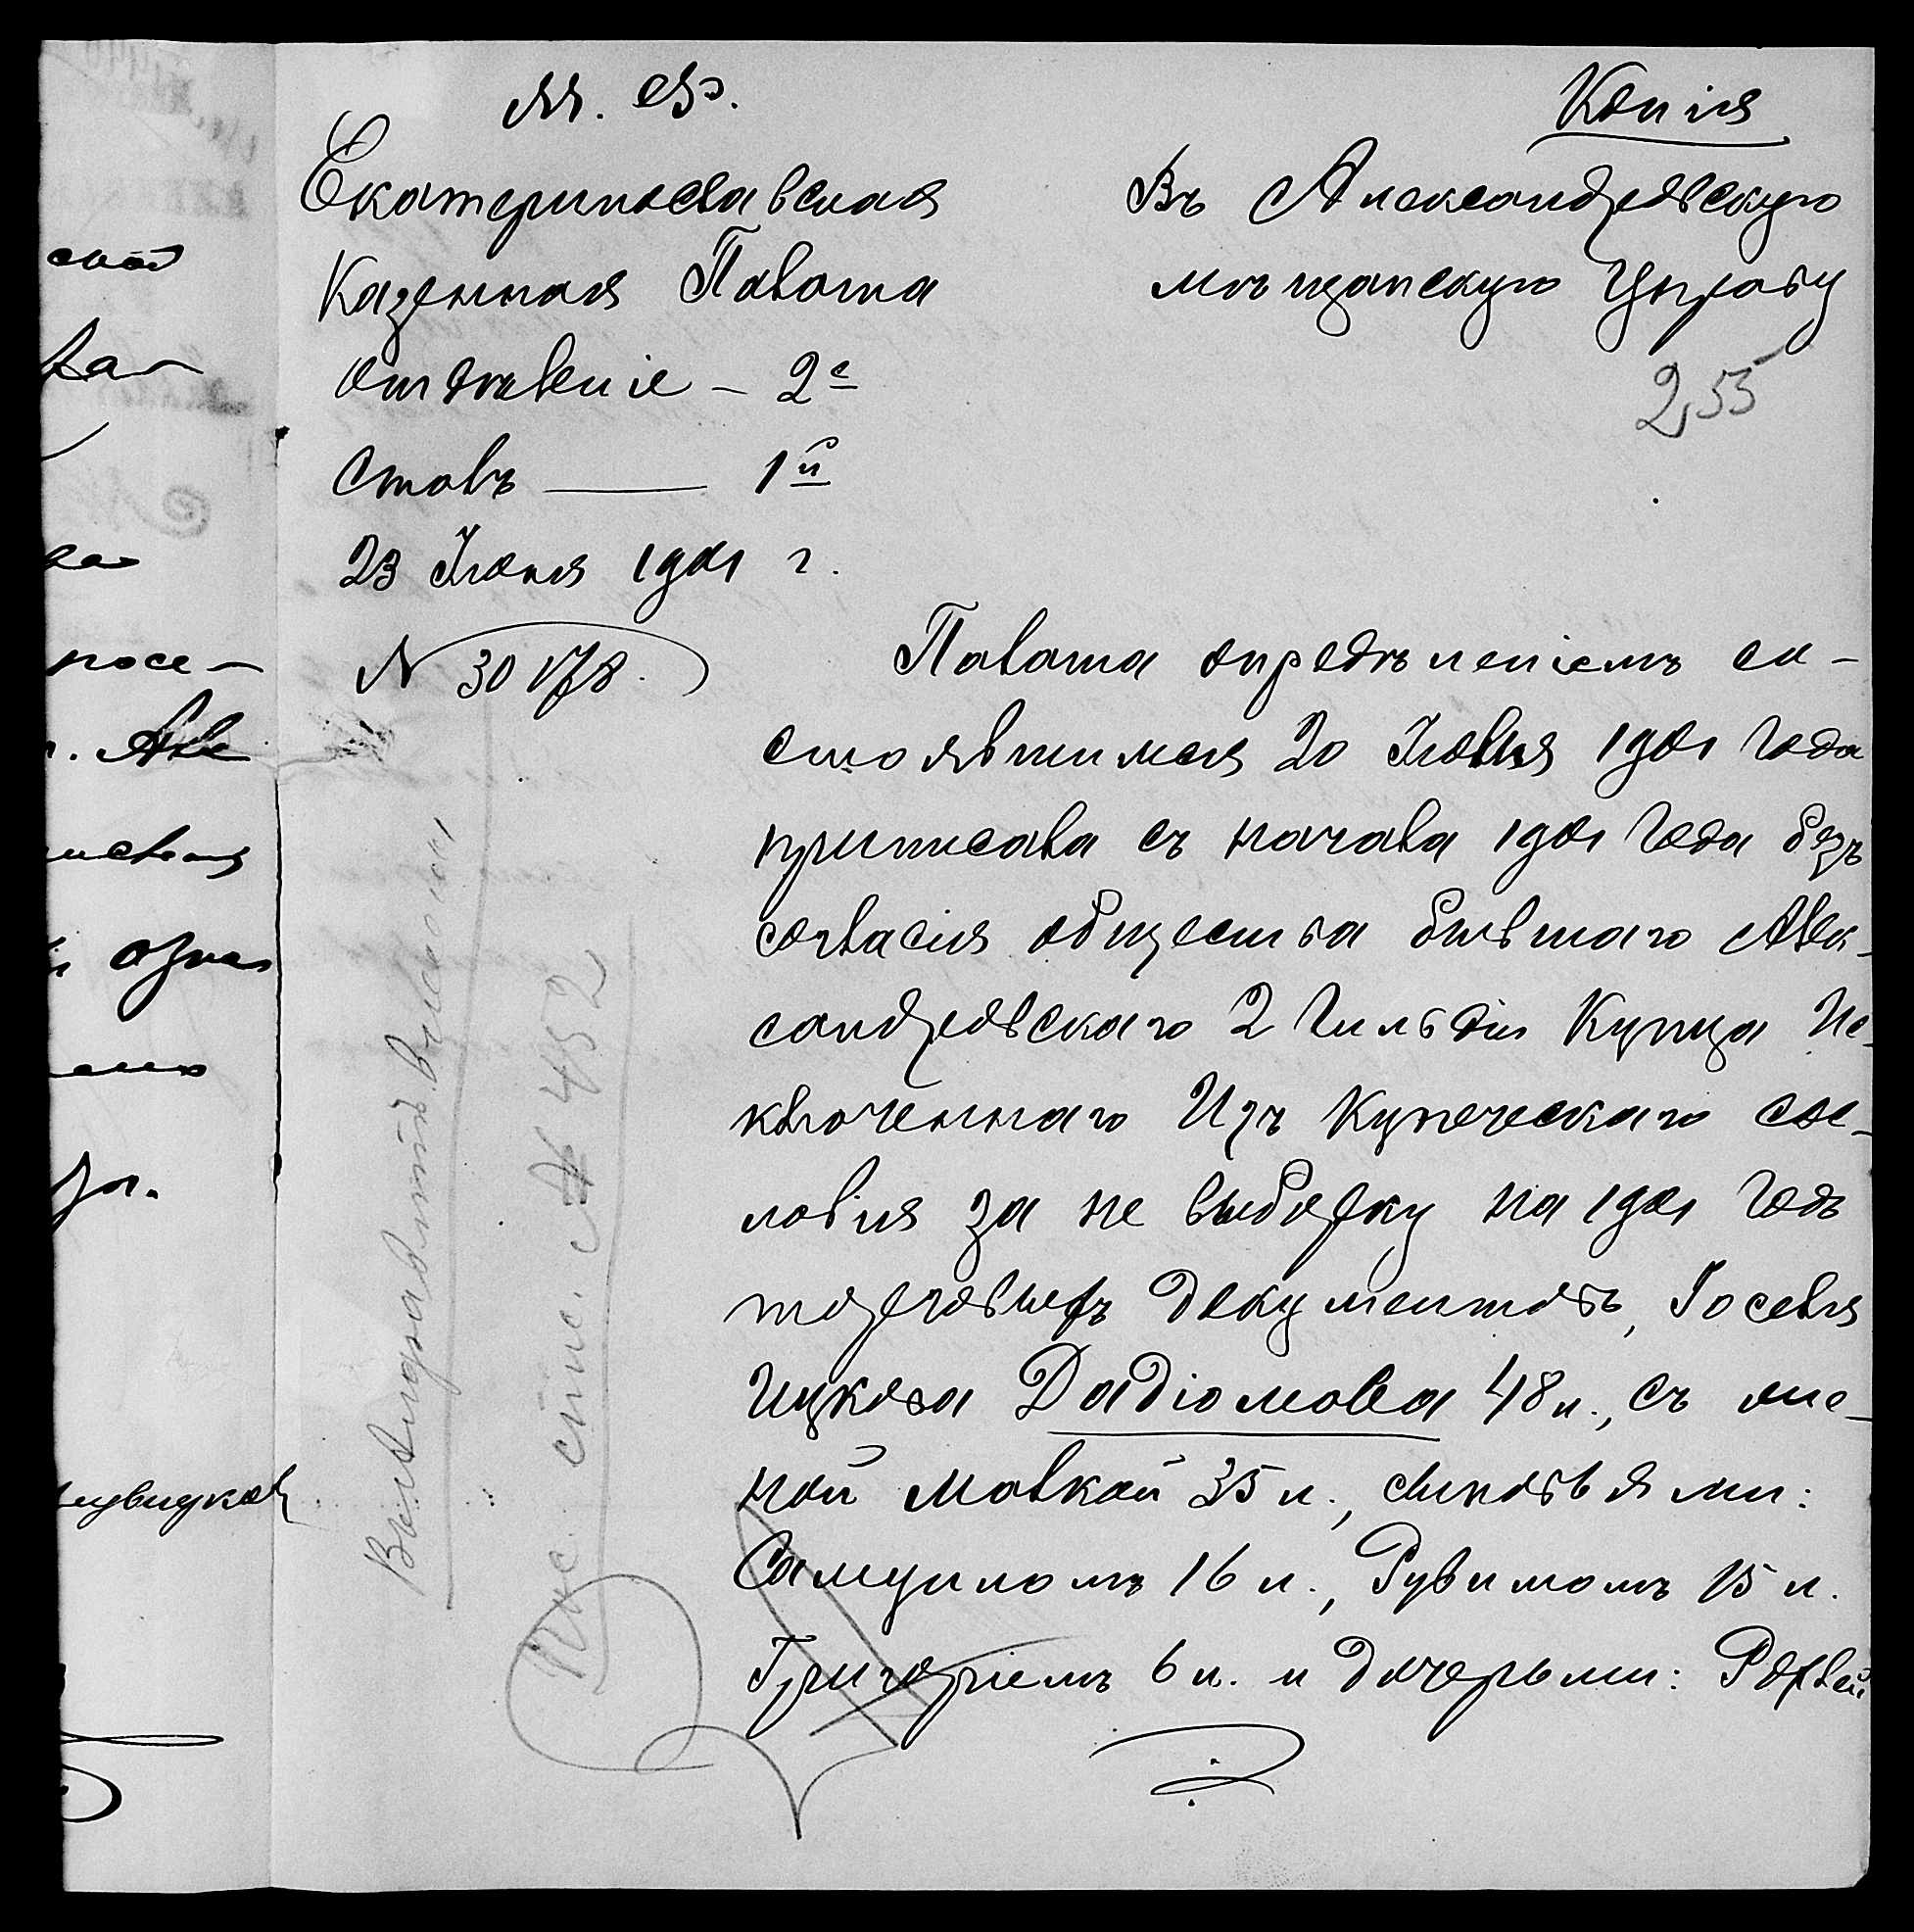 М. Ф.
Копія
Екатеринославская
Казенная Палата
отдѣленіе – 2е
Столъ — 1й
23 Іюня 1901 г.
N 30178.
Въ Александровскую
мѣщанскую Управу
255
Палата опредѣленіемъ со-
стоявшимся 20 Іюня 1901 года
приписала съ начала 1901 года безъ
согласія общества бывшаго Алек-
сандровскаго 2 гильдіи Купца Ис-
ключеннаго Изъ Купеческаго сос-
ловія за не выборку на 1901 годъ
торговыхъ документовъ, Іоселя
Ицкова Дадіомова 48 л., съ же-
ной Малкой 35 л., сыновьями:
Самуиломъ 16 л., Рувимомъ 15 л.
Григоріемъ 6 л. и дочерьми: Рохлей
Пос. спис. № 452
ской
ра
посе-
г. Але